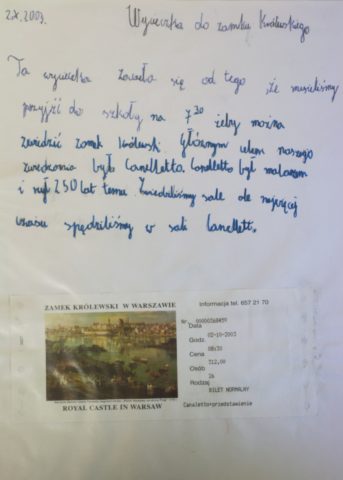 2.X.2003.
Wycieczka do zamku Królewskiego
Ta wycieczka zaczęła się od tego, że musieliśmy
przyjść do szkoły na 7³⁰ żeby można
zwiedzić zamek królewski. Głównym celem naszego
zwiedzania było Canelletto. Canelletto był malarzem
i żył 250 lat temu. Zwiedziliśmy sale ale najwięcej
czasu spędziliśmy w sali Canelletta.
ZAMEK KRÓLEWSKI W WARSZAWIE
ROYAL CASTLE IN WARSAW
Informacja tel. 657 21 70
Nr
Data
02-10-2003
Godz.
08:30
Cena
312,00
Osób
26
Rodzaj
BILET NORMALNY
Canaletto+przedstawienie